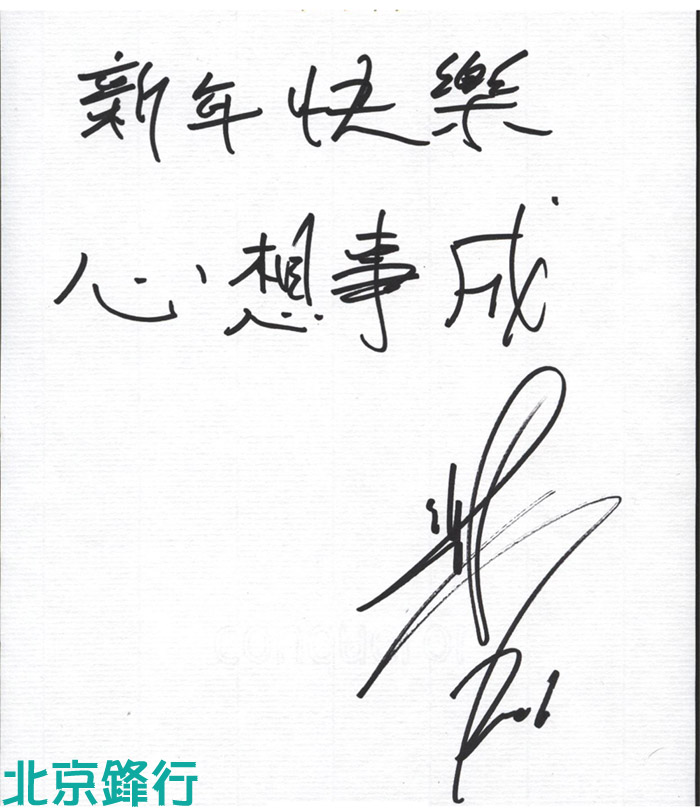 新年快樂
心想事成
北京鋒行